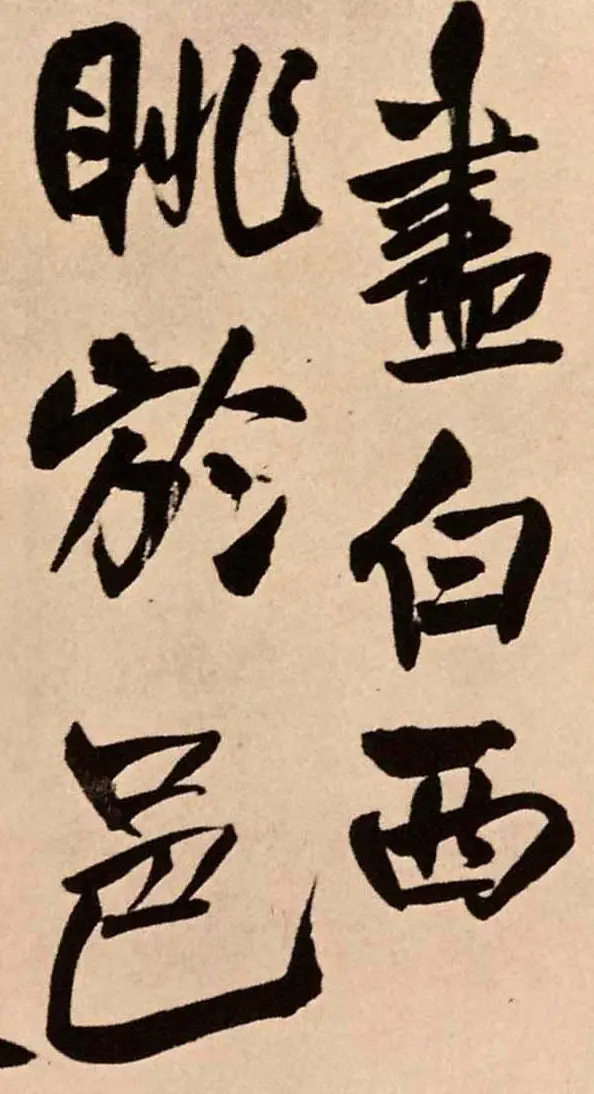 盡白西
眺於邑